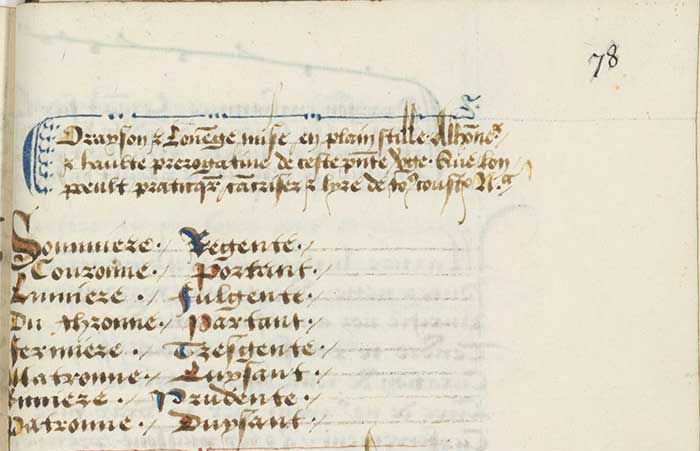 78
Orayson & Louenge mise en plain stille.
& haulte prerogatiue de ceste pnte Que Lon
peult praticqr & lyre de
Sommiere. Regente.
Couronne. Portant.
Lumiere. Fulgente.
Du throsne. Partant.
Fermiere. Tresgente.
Matronne. Luysant.
Prudente.
Patronne. Duysant.